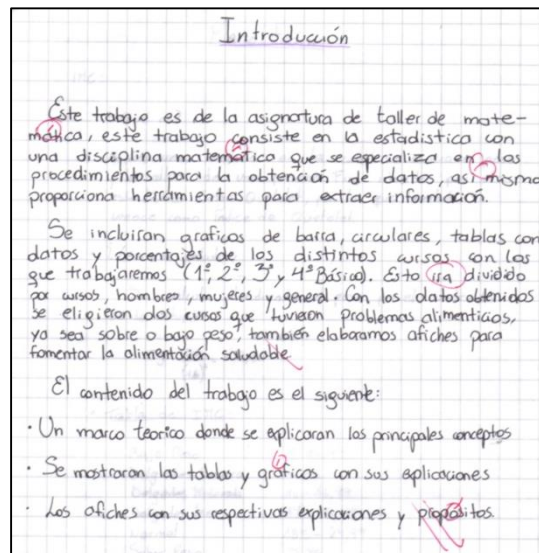 Introducción
Este trabajo es de la asignatura de taller de mate-
mática, este trabajo consiste en la estadistica con
una disciplina matemática que se especializa en los
procedimientos para la obtención de datos, así mismo
proporciona herramientas para extraer información.
Se incluiran graficos de barra, circulares, tablas con
datos y porcentajes de los distintos cursos con los
que trabajaremos (1º, 2º, 3º y 4º Básico). Esto ira dividido
por cursos, hombres, mujeres y general. Con los datos obtenidos
se eligieron dos cursos que tuvieron problemas alimenticios,
ya sea sobre o bajo peso, también elaboramos afiches para
fomentar la alimentación saludable.
El contenido del trabajo es el siguiente:
· Un marco teorico donde se explicaran los principales conceptos
· Se mostraran las tablas y gráficos con sus explicaciones
· Los afiches con sus respectivas explicaciones y propósitos.